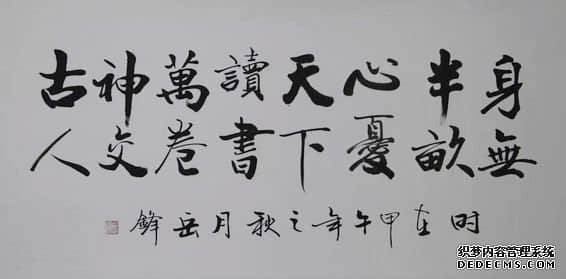 身無
半畝
心憂
天下
讀書
萬卷
神交
古人
时在甲午年之秋月岳鋒
织梦内容管理系统
DEDECMS.COM